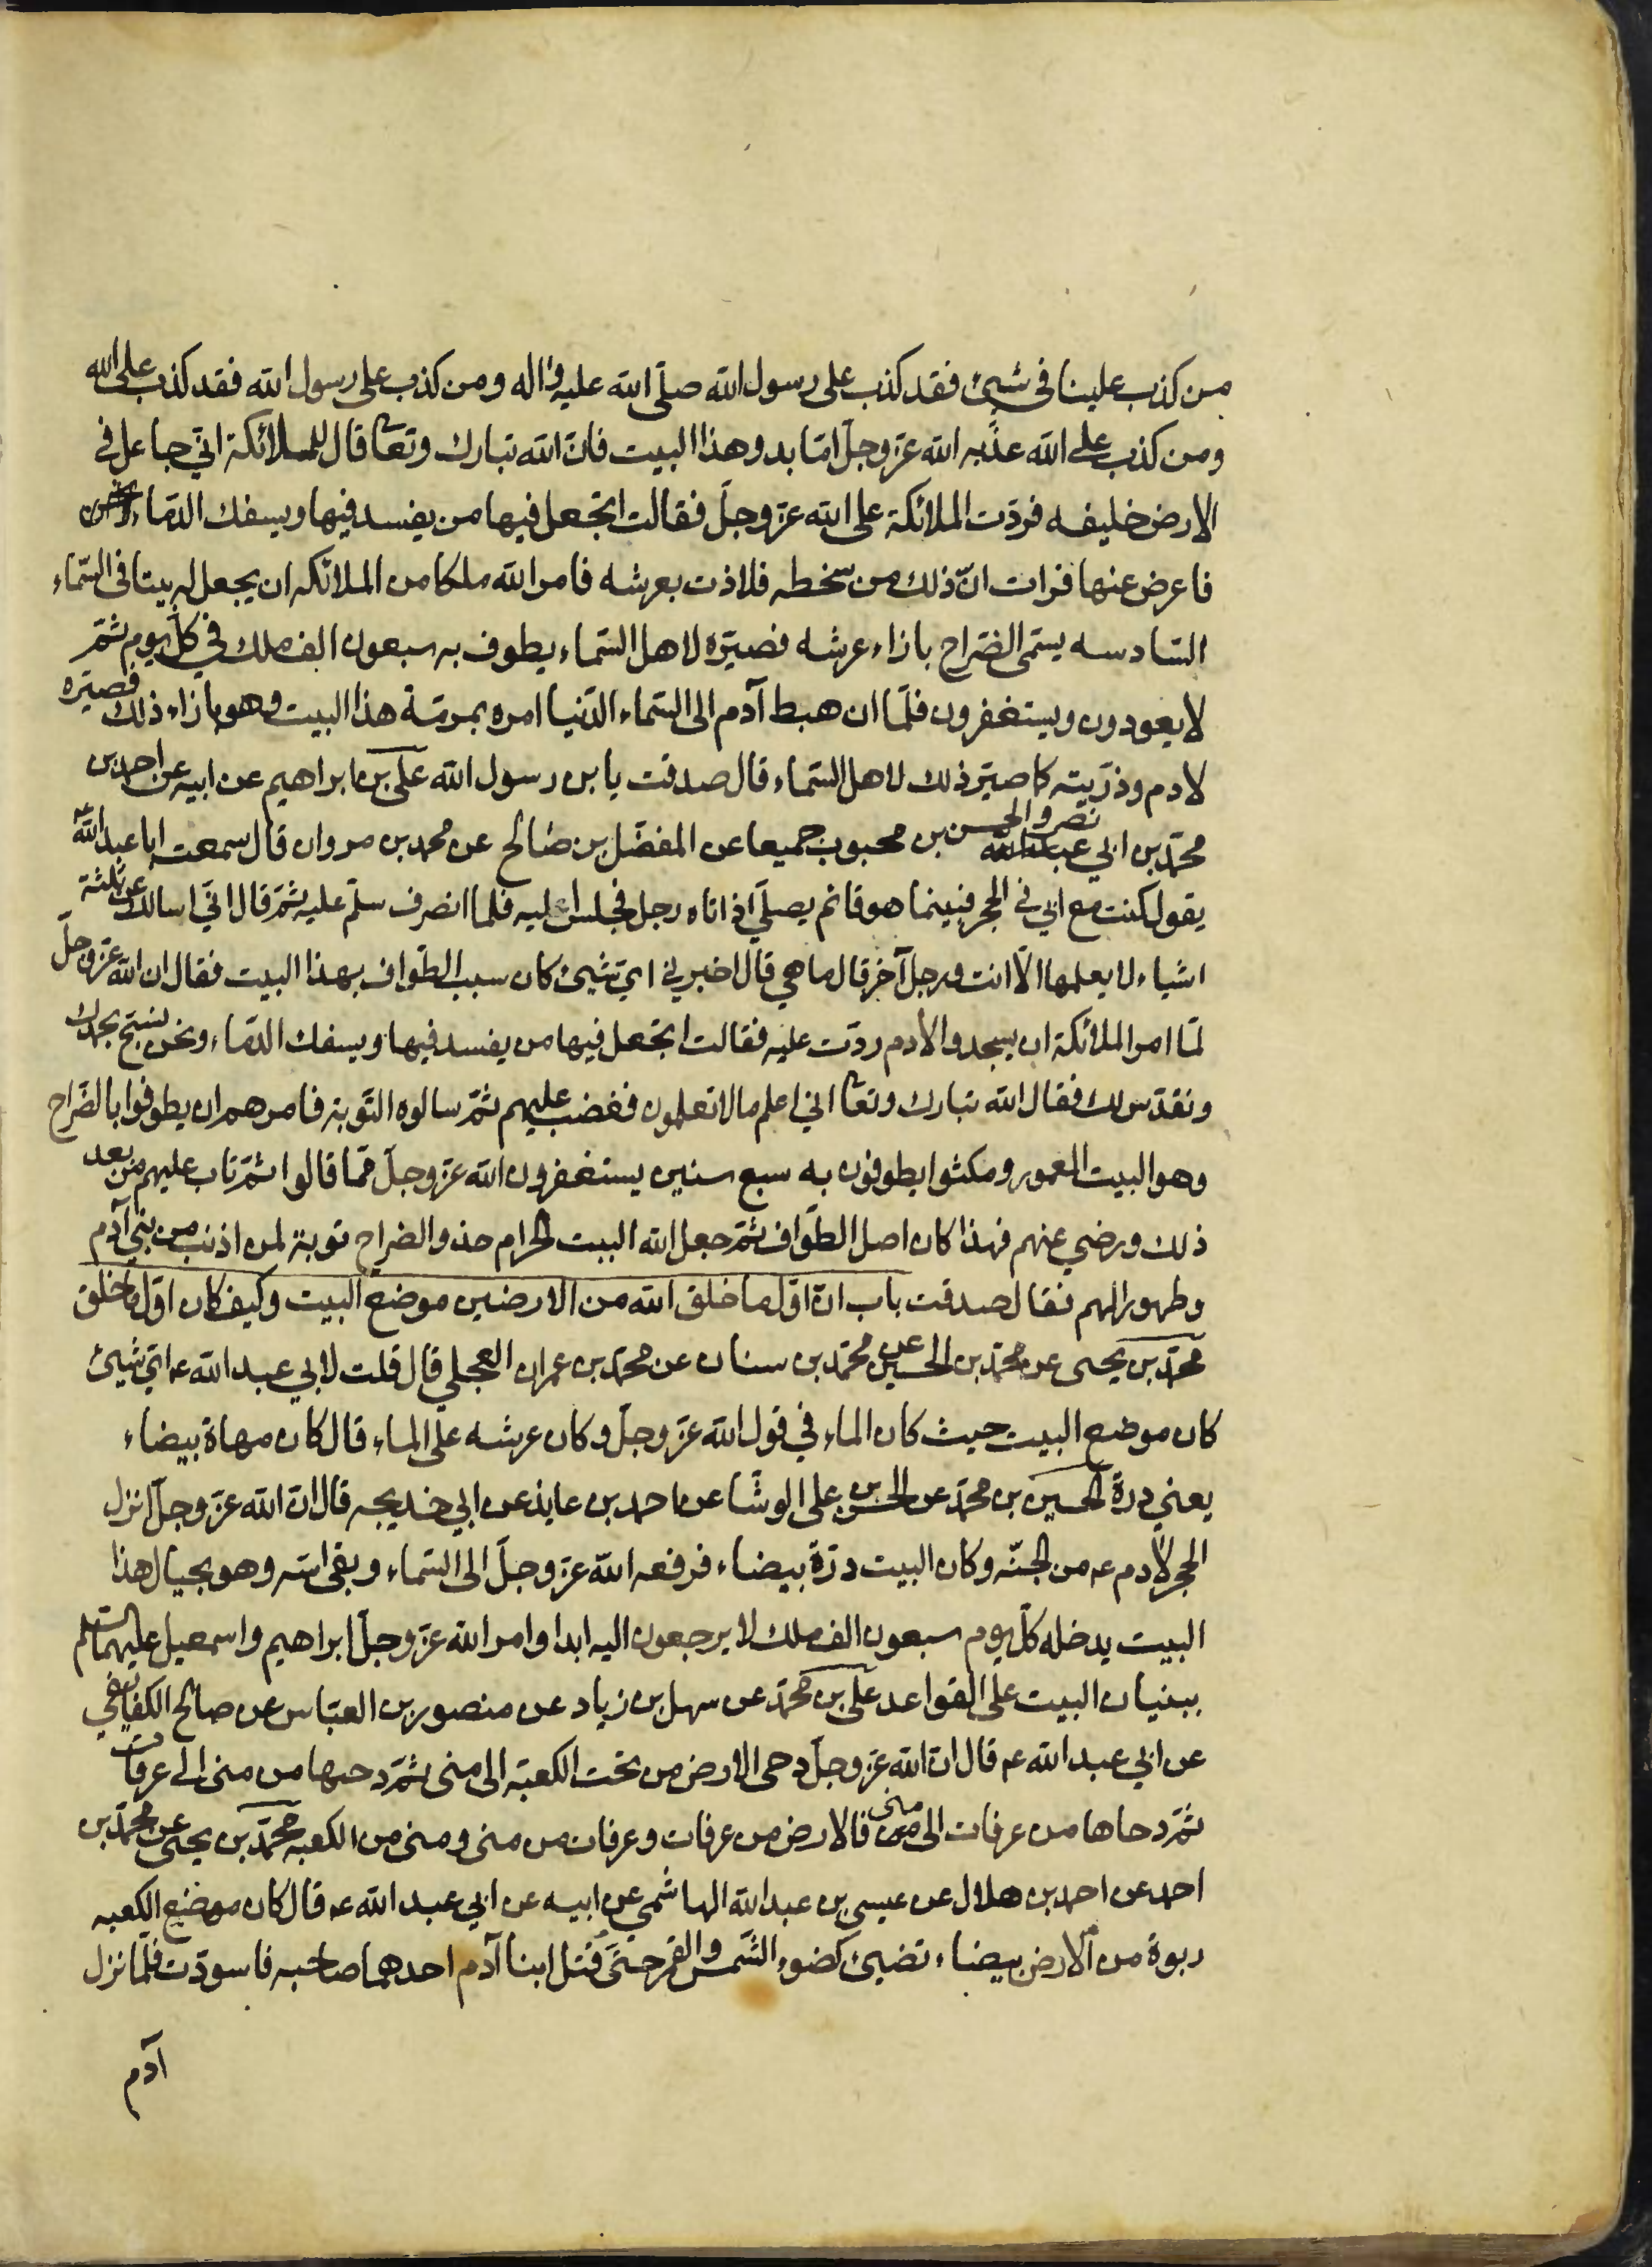 من كذب علينا في شيئ فقد كذب على رسول الله صلّى الله عليه واله ومن كذب على رسول الله فقد كذب على الله
ومن كذب على الله عذّبه الله عزّ وجلّ امّا بدو هذا البيت فانّ الله تبارك وتعا قال للملائكة انّي جاعل في
الارض خليفه فردّت الملائكة على الله عزّ وجلّ فقالت اتجعل فيها من يفسد فيها ويسفك الدّماء
فاعرض عنها فرات انّ ذلك من سخطه فلاذت بعرشه فامر الله ملكا من الملائكه ان يجعل له بيتا في السّماء
السّادسه يسمّى الضّراح بازاء عرشه فصيّره لاهل السّماء يطوف به سبعون الف ملك في كلّ يوم ثمّ
لا يعودون ويستغفرون فلمّا ان هبط آدم الى السّماء الدّنيا امره بمرمّة هذا البيت وهو بازاء ذلك فصيّره
لادم وذرّيته كما صيّر ذلك لاهل السّماء قال صدقت يا بن رسول الله علي بن ابراهيم عن ابيه عن احمد بن
محمّد بن ابي نصر والحسن بن محبوب جميعا عن المفضّل بن صالح عن محمد بن مروان قال سمعت ابا عبد الله ع
يقول كنت مع ابي في الحجر فبينما هو قائم يصلّي اذ اتاه رجل فجلس اليه فلما انصرف سلّم عليه ثمّ قال انّي اسالك عن ثلثة
اشياء لا يعلمها الّا انت ورجل آخر قال ما هي قال اخبرني ايّ شيئ كان سبب الطّواف بهذا البيت فقال ان الله عزّ وجلّ
لمّا امر الملائكة ان يسجدوا لادم ردّت عليه فقالت اتجعل فيها من يفسد فيها ويسفك الدّماء ونحن نسبّح بحمدك
ونقدّس لك فقال الله تبارك وتعا اني اعلم ما لا تعلمون فغضب عليهم ثمّ سالوه التّوبة فامرهم ان يطوفوا بالضّراح
وهو البيت المعمور ومكثوا يطوفون به سبع سنين يستغفرون الله عزّ وجلّ ممّا قالوا ثمّ تاب عليهم من بعد
ذلك ورضي عنهم فهذا كان اصل الطّواف ثمّ جعل الله البيت الحرام حذو الضراح توبة لمن اذنب من بني آدم
وطهورا لهم فقال صدقت باب انّ اوّل ما خلق الله من الارضين موضع البيت وكيف كان اوّل ما خلق
محمّد بن يحيى عن محمّد بن الحسين عن محمّد بن سنان عن محمّد بن عمران العجلي قال قلت لابي عبد الله ع ايّ شيئ
كان موضع البيت حيث كان الماء في قول الله عزّ وجلّ وكان عرشه على الماء قال كان مهاة بيضاء
يعني درة الحسين بن محمّد عن الحسن بن علي الوشّا عن احمد بن عايذ عن ابي خديجه قال انّ الله عزّ وجلّ انزل
الحجر لادم ع من الجنّه وكان البيت درّة بيضاء فرفعه الله عزّ وجلّ الى السّماء وبقي اسّه وهو بحيال هذا
البيت يدخله كلّ يوم سبعون الف ملك لا يرجعون اليه ابدا وامر الله عزّ وجلّ ابراهيم واسمعيل عليهما السّلم
ببنيان البيت على القواعد علي بن محمّد عن سهل بن زياد عن منصور بن العبّاس عن صالح اللفايفي
عن ابي عبد الله ع قال انّ الله عزّ وجلّ دحى الارض من تحت الكعبة الى منى ثمّ دحيها من منى الى عرفات
ثمّ دحاها من عرفات الى منى فالارض من عرفات وعرفات من منى ومنى من الكعبه محمّد بن يحيى عن محمّد بن
احمد عن احمد بن هلال عن عيسى بن عبد الله الهاشمي عن ابيه عن ابي عبد الله ع قال كان موضع الكعبه
ربوة من الارض بيضاء تضيئ كضوء الشّمس والقمر حتّى قتل ابنا آدم احدهما صاحبه فاسودّت فلمّا نزل
آدم